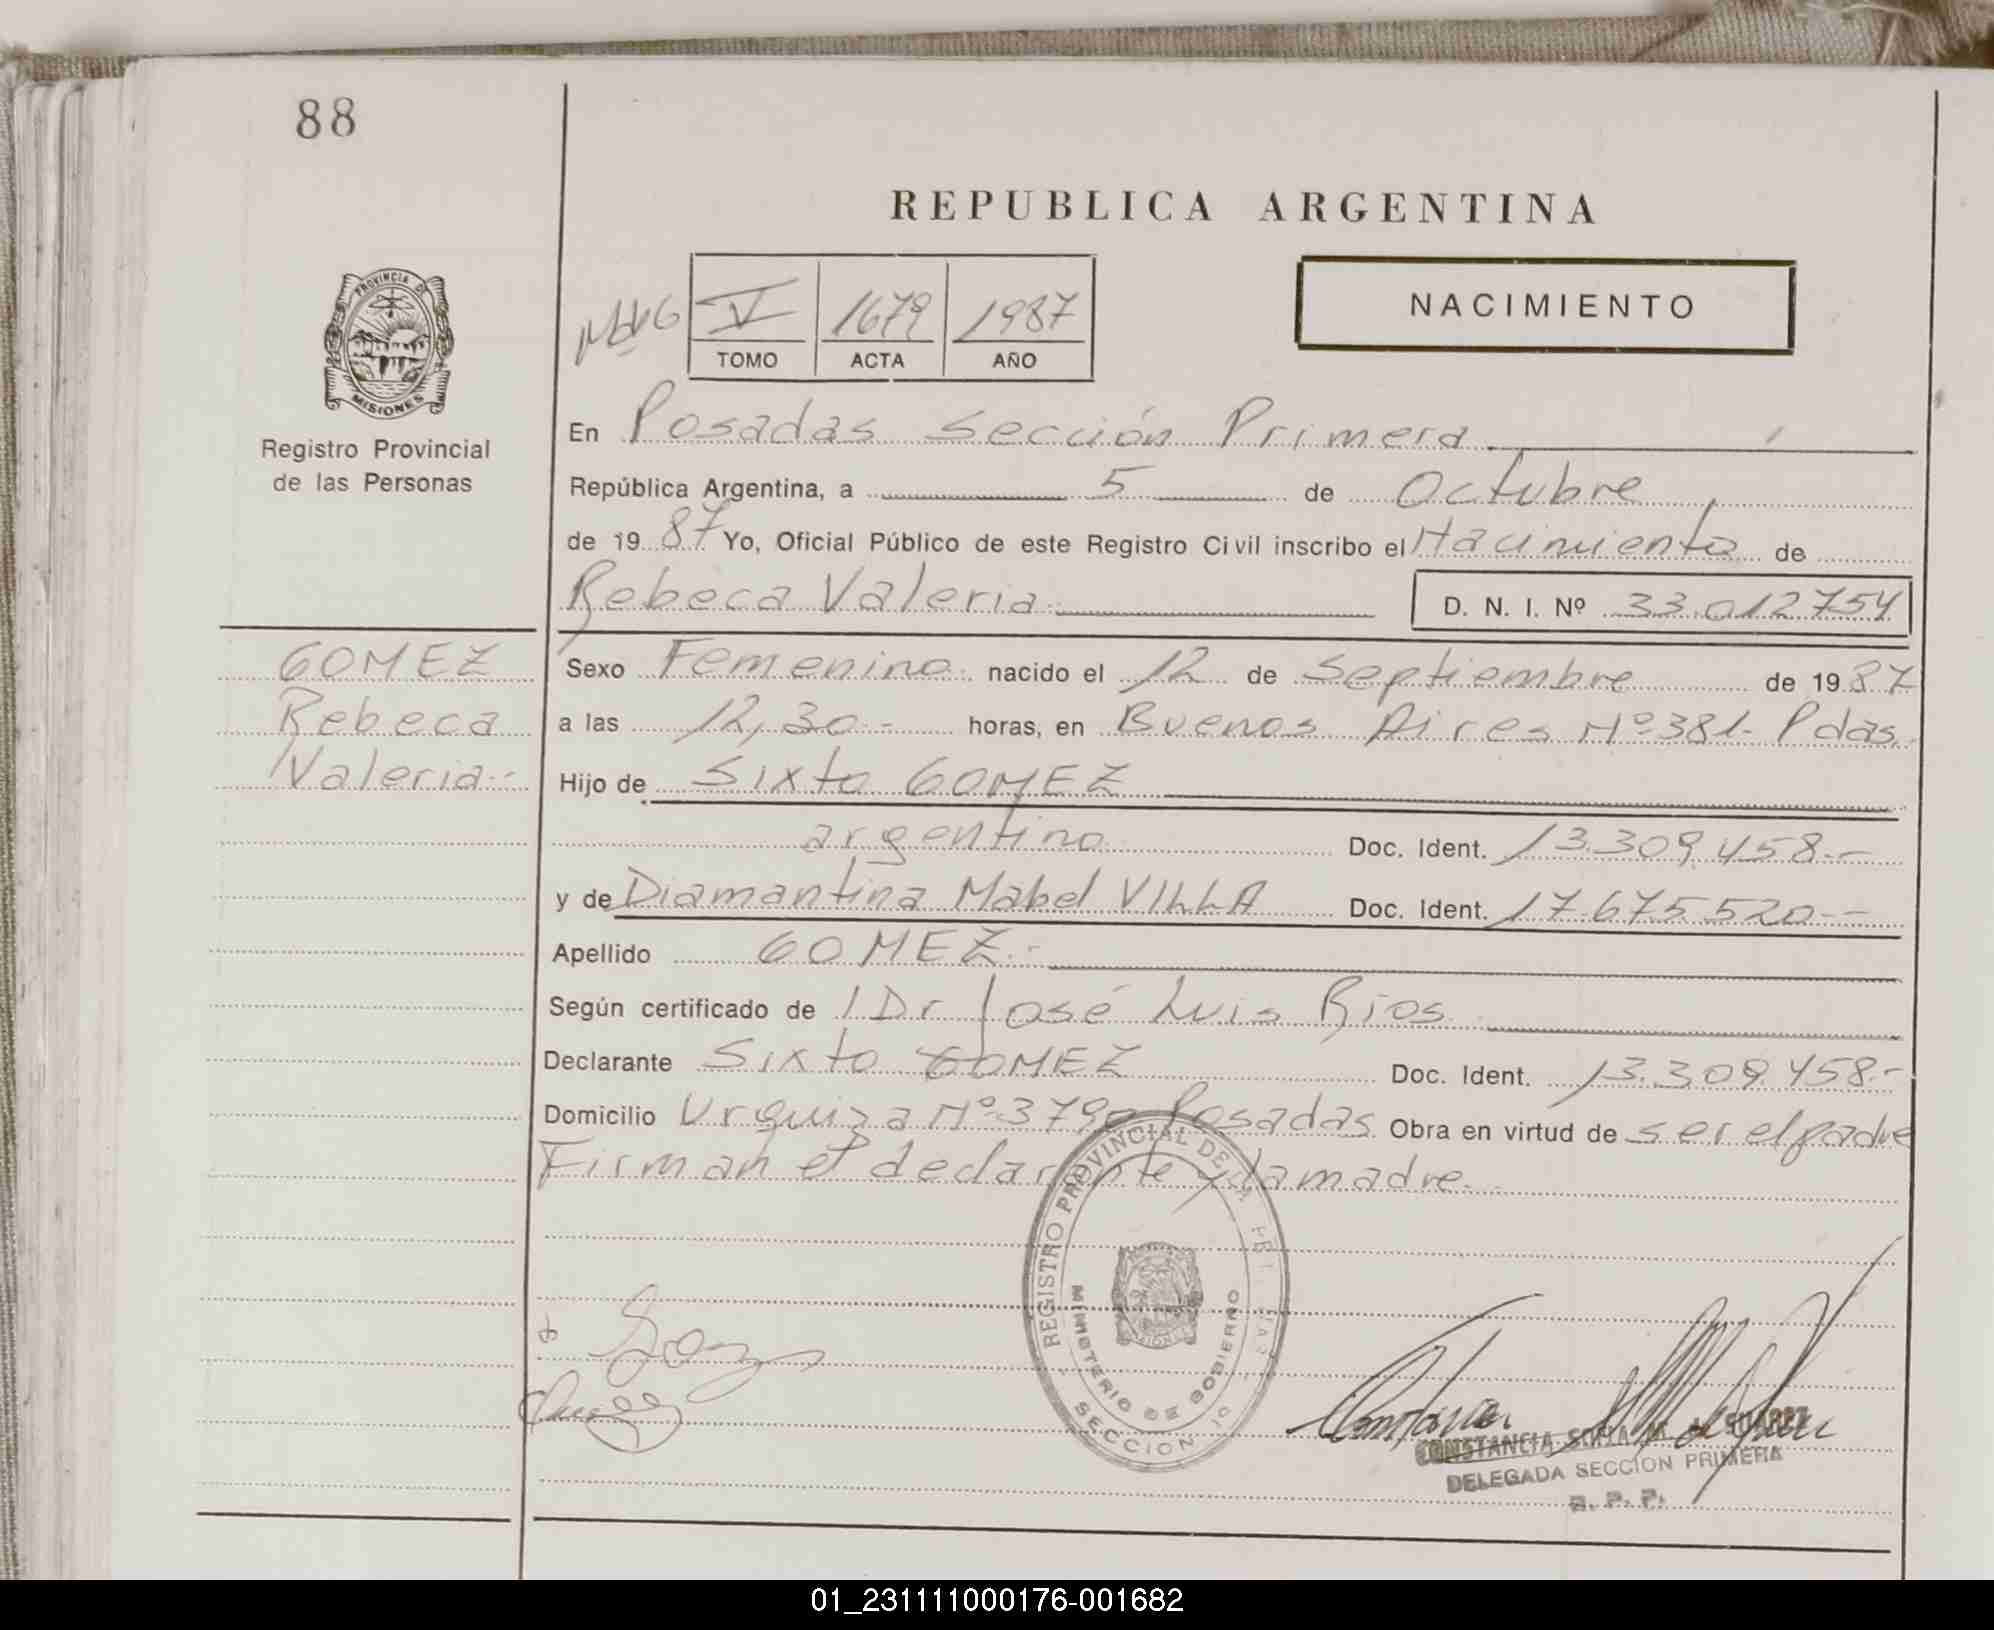 88
REPUBLICA ARGENTINA
PROVINCIA DE
MISIONES
Registro Provincial
de las Personas
V 1679 1987
TOMO ACTA AÑO
NACIMIENTO
En Posadas Sección Primera
República Argentina, a 5 de Octubre
de 1987 Yo, Oficial Público de este Registro Civil inscribo el Nacimiento de
Rebeca Valeria D. N. I. Nº 33.012.754
GOMEZ
Rebeca
Valeria.-
Sexo Femenino nacido el 12 de Septiembre de 1987
a las 12,30.- horas, en Buenos Aires Nº 381- Pdas.
Hijo de Sixto GOMEZ
argentino Doc. Ident. 13.309.458.-
y de Diamantina Mabel VILLA Doc. Ident. 17.675.520.-
Apellido GOMEZ.-
Según certificado de Dr José Luis Ríos
Declarante Sixto GOMEZ Doc. Ident. 13.309.458.-
Domicilio Urquiza Nº 3790 Posadas Obra en virtud de ser el padre
Firman el declarante y la madre.
REGISTRO PROVINCIAL DE LA
MINISTERIO DE GOBIERNO
SECCION
CONSTANCIA SUAREZ
DELEGADA SECCION PRIMERA
R. P. P.
01_231111000176-001682